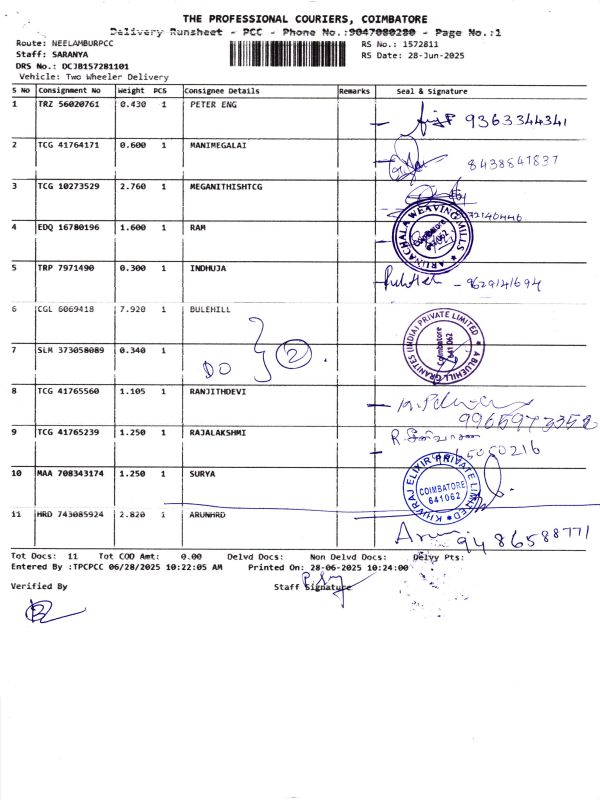 THE PROFESSIONAL COURIERS, COIMBATORE
Delivery Runsheet - PCC - Phone No.:9047080280 - Page No.:1
Route: NEELAMBURPCC
RS No.: 1572811
Staff: SARANYA
RS Date: 28-Jun-2025
DRS No.: OCJB157281101
Vehicle: Two Wheeler Delivery
S No Consignment No Weight PCS Consignee Details Remarks Seal & Signature
1 TRZ 56020761 0.430 1 PETER ENG 9363344341
2 TCG 41764171 0.600 1 MANIMEGALAI 8438641837
3 TCG 10273529 2.760 1 MEGANITHISHTCG
4 EDQ 16780196 1.600 1 RAM
ARUNACHALA WEAVING MILLS Coimbatore 641062
5 TRP 7971490 0.300 1 INDHUJA 9629141694
6 CGL 6069418 7.920 1 BULEHILL
A BLUEHILL GRANITES (INDIA) PRIVATE LIMITED Coimbatore 641 062
7 SLM 373058089 0.340 1 DO 2
8 TCG 41765560 1.105 1 RANJITHDEVI
9965973352
9 TCG 41765239 1.250 1 RAJALAKSHMI
10 MAA 708343174 1.250 1 SURYA
KHIVRAJ ELIXIR PRIVATE LIMITED COIMBATORE 641062
11 HRD 743085924 2.820 1 ARUNHRD Arun 9486588771
Tot Docs: 11 Tot COD Amt: 0.00 Delvd Docs: Non Delvd Docs: Delvy Pts:
Entered By :TPCPCC 06/28/2025 10:22:05 AM Printed On: 28-06-2025 10:24:00
Verified By Staff Signature